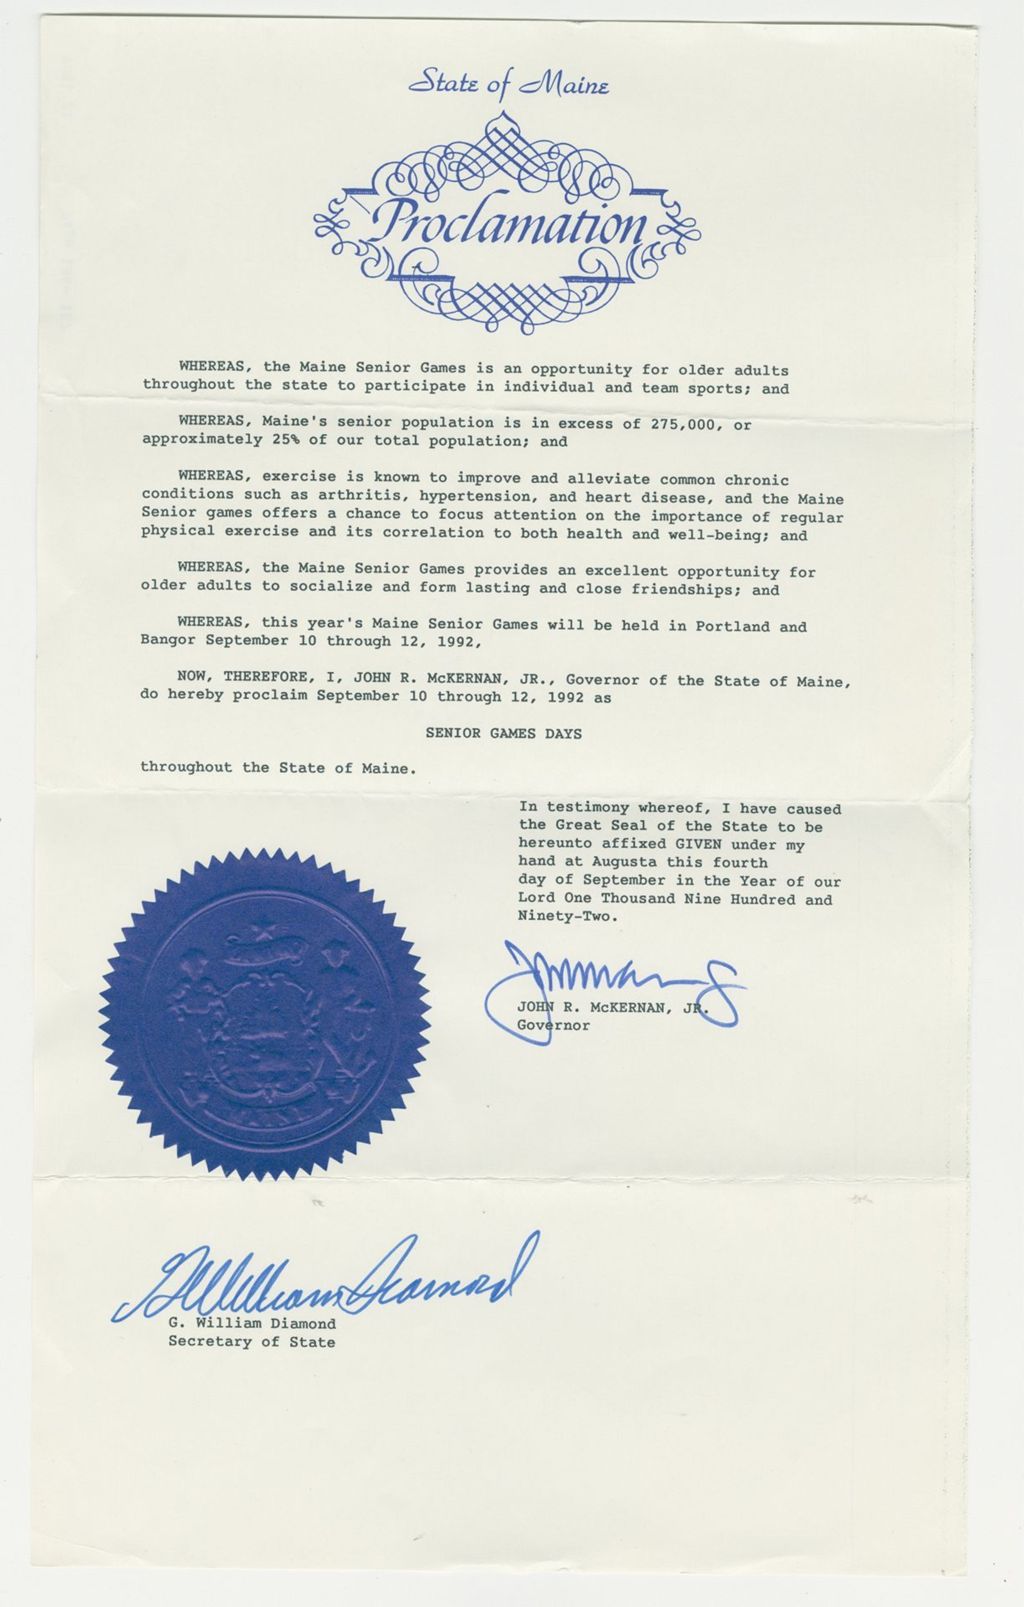 State of Maine
Proclamation
WHEREAS, the Maine Senior Games is an opportunity for older adults
throughout the state to participate in individual and team sports; and
WHEREAS, Maine's senior population is in excess of 275,000, or
approximately 25% of our total population; and
WHEREAS, exercise is known to improve and alleviate common chronic
conditions such as arthritis, hypertension, and heart disease, and the Maine
Senior games offers a chance to focus attention on the importance of regular
physical exercise and its correlation to both health and well-being; and
WHEREAS, the Maine Senior Games provides an excellent opportunity for
older adults to socialize and form lasting and close friendships; and
WHEREAS, this year's Maine Senior Games will be held in Portland and
Bangor September 10 through 12, 1992,
NOW, THEREFORE, I, JOHN R. McKERNAN, JR., Governor of the State of Maine,
do hereby proclaim September 10 through 12, 1992 as
SENIOR GAMES DAYS
throughout the State of Maine.
In testimony whereof, I have caused
the Great Seal of the State to be
hereunto affixed GIVEN under my
hand at Augusta this fourth
day of September in the Year of our
Lord One Thousand Nine Hundred and
Ninety-Two.
JOHN R. McKERNAN, JR.
Governor
MAINE
G William Diamond
G. William Diamond
Secretary of State